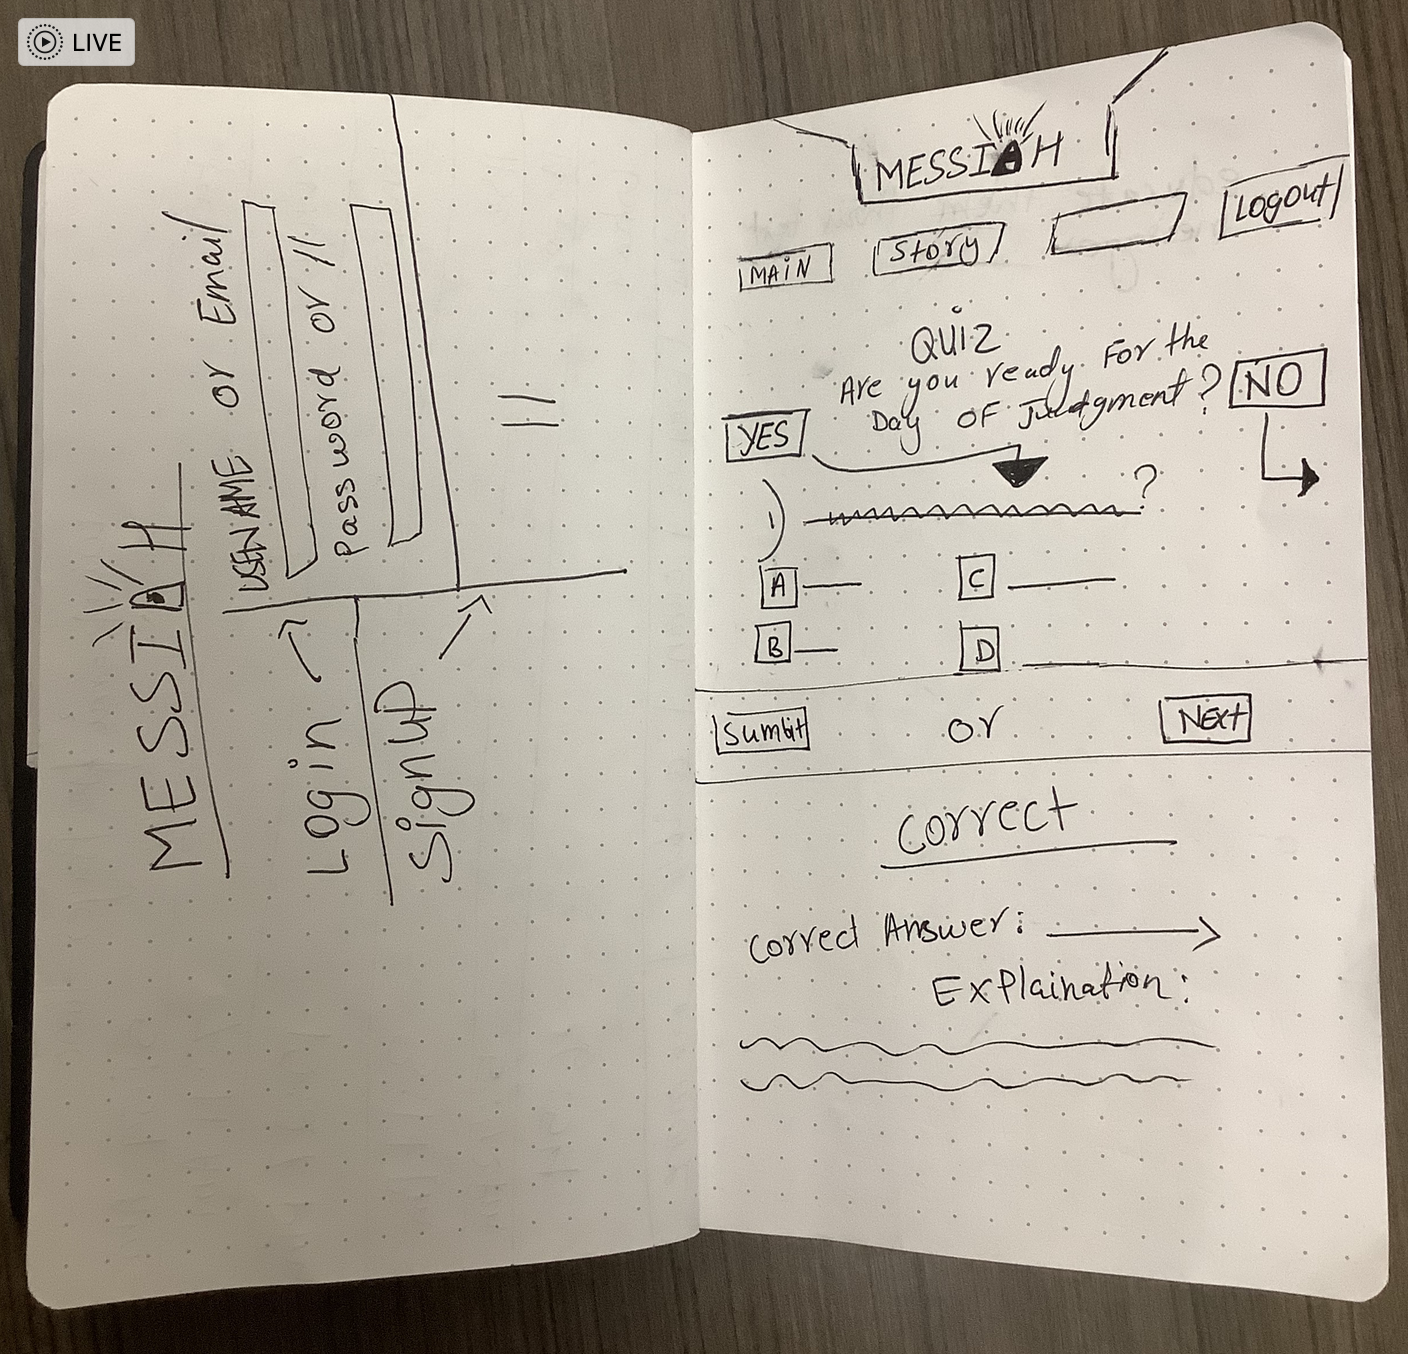 LIVE
MESSIAH
USENAME or Email
Password or //
Login
Signup
MESSIAH
MAiN
Story
Logout
QUiZ
Are you ready For the
Day OF Judgment?
YES
NO
1)
?
A
C
B
D
Sumbit
or
Next
Correct
Correct Answer:
Explaination: